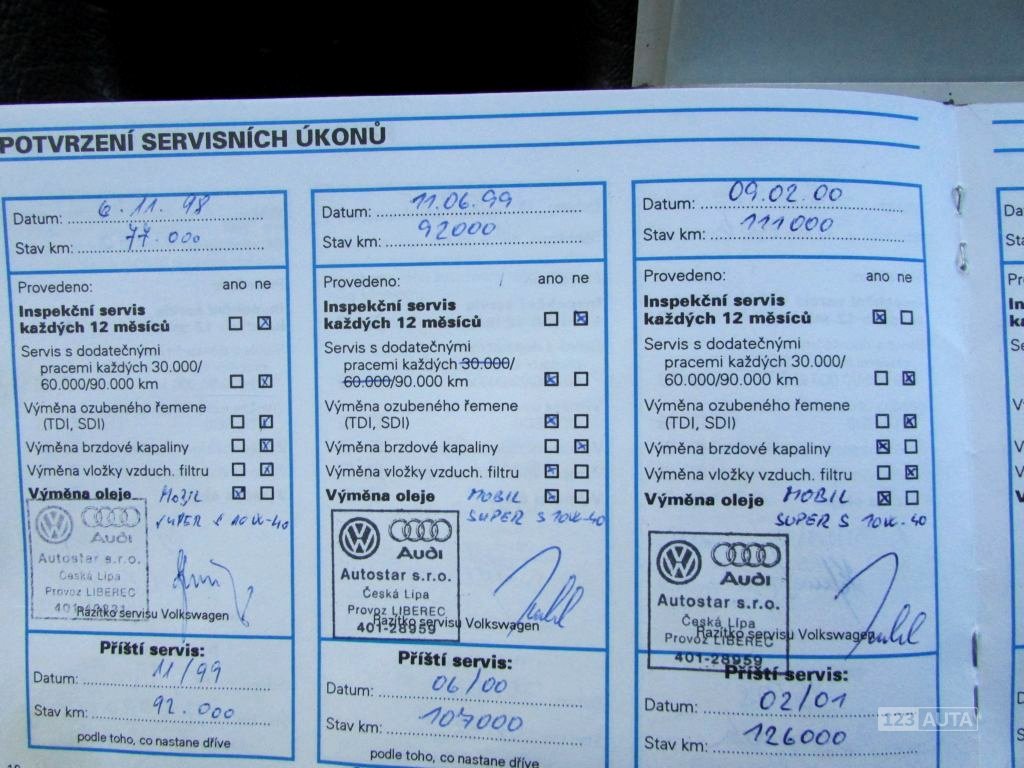 POTVRZENÍ SERVISNÍCH ÚKONŮ
Datum: 6.11.98
Stav km: 77.000
Provedeno: ano ne
Inspekční servis
každých 12 měsíců
Servis s dodatečnými
pracemi každých 30.000/
60.000/90.000 km
Výměna ozubeného řemene
(TDI, SDI)
Výměna brzdové kapaliny
Výměna vložky vzduch. filtru
Výměna oleje MOBIL
SUPER S 10W-40
Audi
Autostar s.r.o.
Česká Lípa
Provoz LIBEREC
Razítko servisu Volkswagen
Příští servis:
Datum: 11/99
Stav km: 92.000
podle toho, co nastane dříve
Datum: 11.06.99
Stav km: 92000
Provedeno: ano ne
Inspekční servis
každých 12 měsíců
Servis s dodatečnými
pracemi každých 30.000/
60.000/90.000 km
Výměna ozubeného řemene
(TDI, SDI)
Výměna brzdové kapaliny
Výměna vložky vzduch. filtru
Výměna oleje MOBIL
SUPER S 10W-40
Audi
Autostar s.r.o.
Česká Lípa
Provoz LIBEREC
Razítko servisu Volkswagen
401-28959
Příští servis:
Datum: 06/00
Stav km: 107000
podle toho, co nastane dříve
Datum: 09.02.00
Stav km: 111000
Provedeno: ano ne
Inspekční servis
každých 12 měsíců
Servis s dodatečnými
pracemi každých 30.000/
60.000/90.000 km
Výměna ozubeného řemene
(TDI, SDI)
Výměna brzdové kapaliny
Výměna vložky vzduch. filtru
Výměna oleje MOBIL
SUPER S 10W-40
Audi
Autostar s.r.o.
Česká Lípa
Provoz LIBEREC
Razítko servisu Volkswagen
401-28959
Příští servis:
Datum: 02/01
Stav km: 126000
123 AUTA